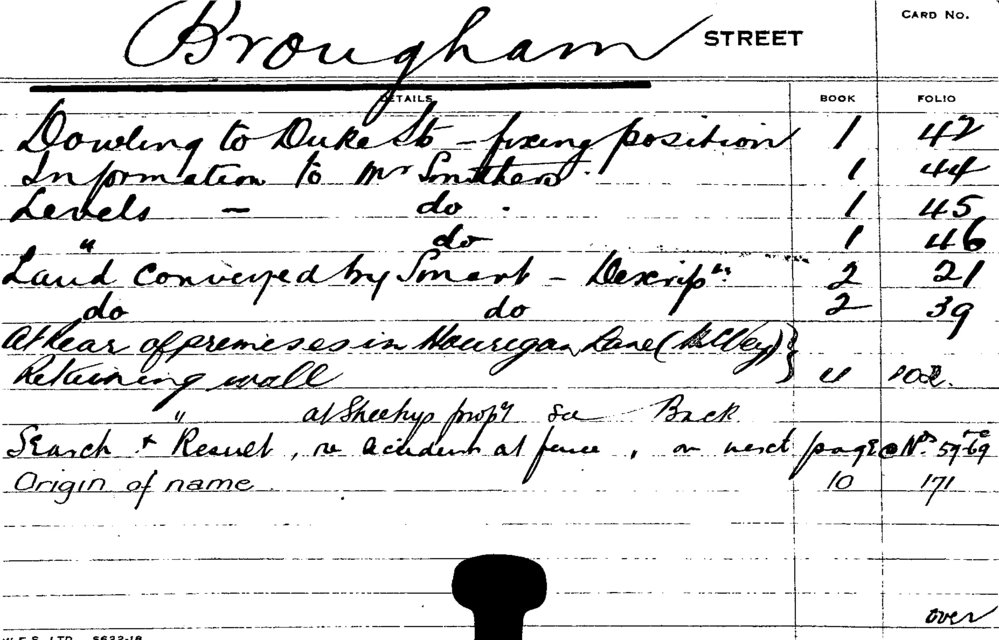 CARD No.
Brougham STREET
DETAILS BOOK FOLIO
Dowling to Duke St - fixing position 1 42
Information to Mr Smithers 1 44
Levels - do. 1 45
" do 1 46
Land conveyed by Smart - Descripns 2 21
do do 2 39
At Rear of premises in Hourigan Lane
Retaining wall 4 102.
" at Sheehys propy See Back
Search & Result, re accident at fence, on next page @ Nos 59-69
Origin of name 10 171
over
W.E.S. LTD. 5622-18